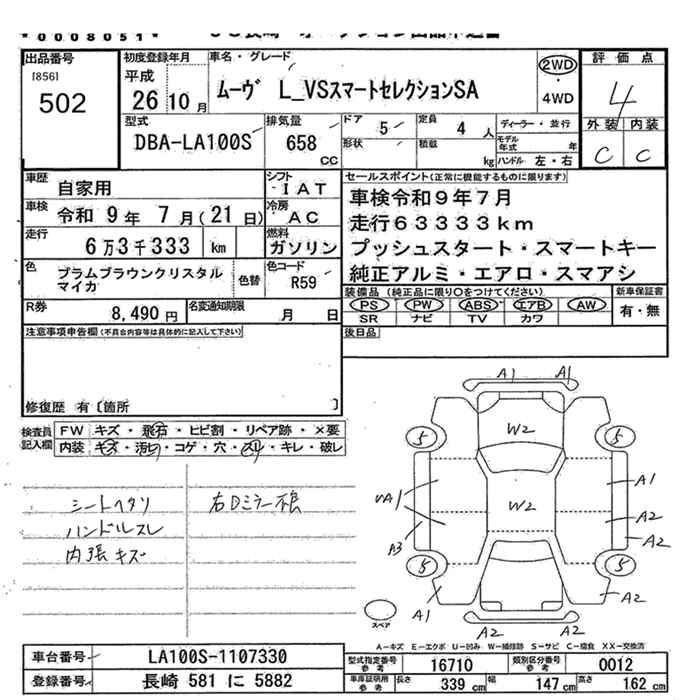 *0008051*
出品番号
[856]
502
初度登録年月
平成
26年10月
車名・グレード
ムーヴ L_VSスマートセレクションSA
2WD
・
4WD
評価点
4
外装 内装
C C
型式
DBA-LA100S
排気量
658
CC
ドア 5
形状
定員 4 人
積載 kg
ディーラー・並行
モデル年式 年
ハンドル 左・右
車歴
自家用
シフト
IAT
車検
令和 9年 7月(21日)
冷房
AC
走行
6万3千333 km
燃料
ガソリン
色
プラムブラウンクリスタル
マイカ
色替
色コード
R59
R券
8,490円
名変通知期限
月 日
セールスポイント(正常に機能するものに限ります)
車検令和9年7月
走行63333km
プッシュスタート・スマートキー
純正アルミ・エアロ・スマアシ
装備品(純正品に限り○をつけてください)
PS PW ABS エアB AW
SR ナビ TV カワ
新車保証書
有・無
後日品
注意事項申告欄(不具合内容等は具体的に記入して下さい)
修復歴 有〔箇所 〕
検査員記入欄
FW キズ・飛石・ヒビ割・リペア跡・×要
内装 キズ・汚れ・コゲ・穴・スリ・キレ・破レ
シートヘタリ
ハンドルスレ
内張キズ
右Dミラー根
A1 A1
5 W2 5
A1
A1
W2
A2
A3
A2
5 5
A1 A2
A2 A2
スペア
A-キズ E-エクボ U-凹み W-補修跡 S-サビ C-腐食 XX-交換済
車台番号 LA100S-1107330
登録番号 長崎 581 に 5882
型式指定番号参考 16710
類別区分番号参考 0012
車庫証明用参考
長さ 339 cm
幅 147 cm
高さ 162 cm